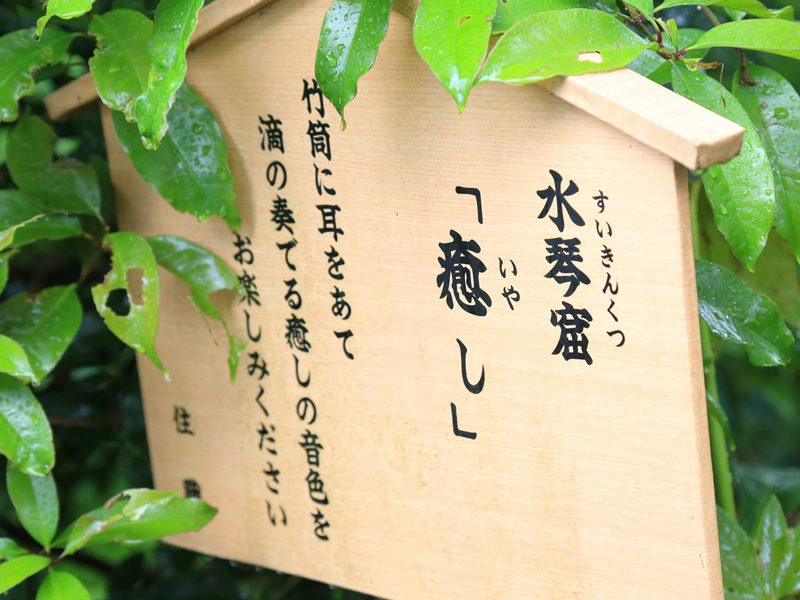 すいきんくつ
水琴窟
いや
「癒し」
竹筒に耳をあて
滴の奏でる癒しの音色を
お楽しみください
住職